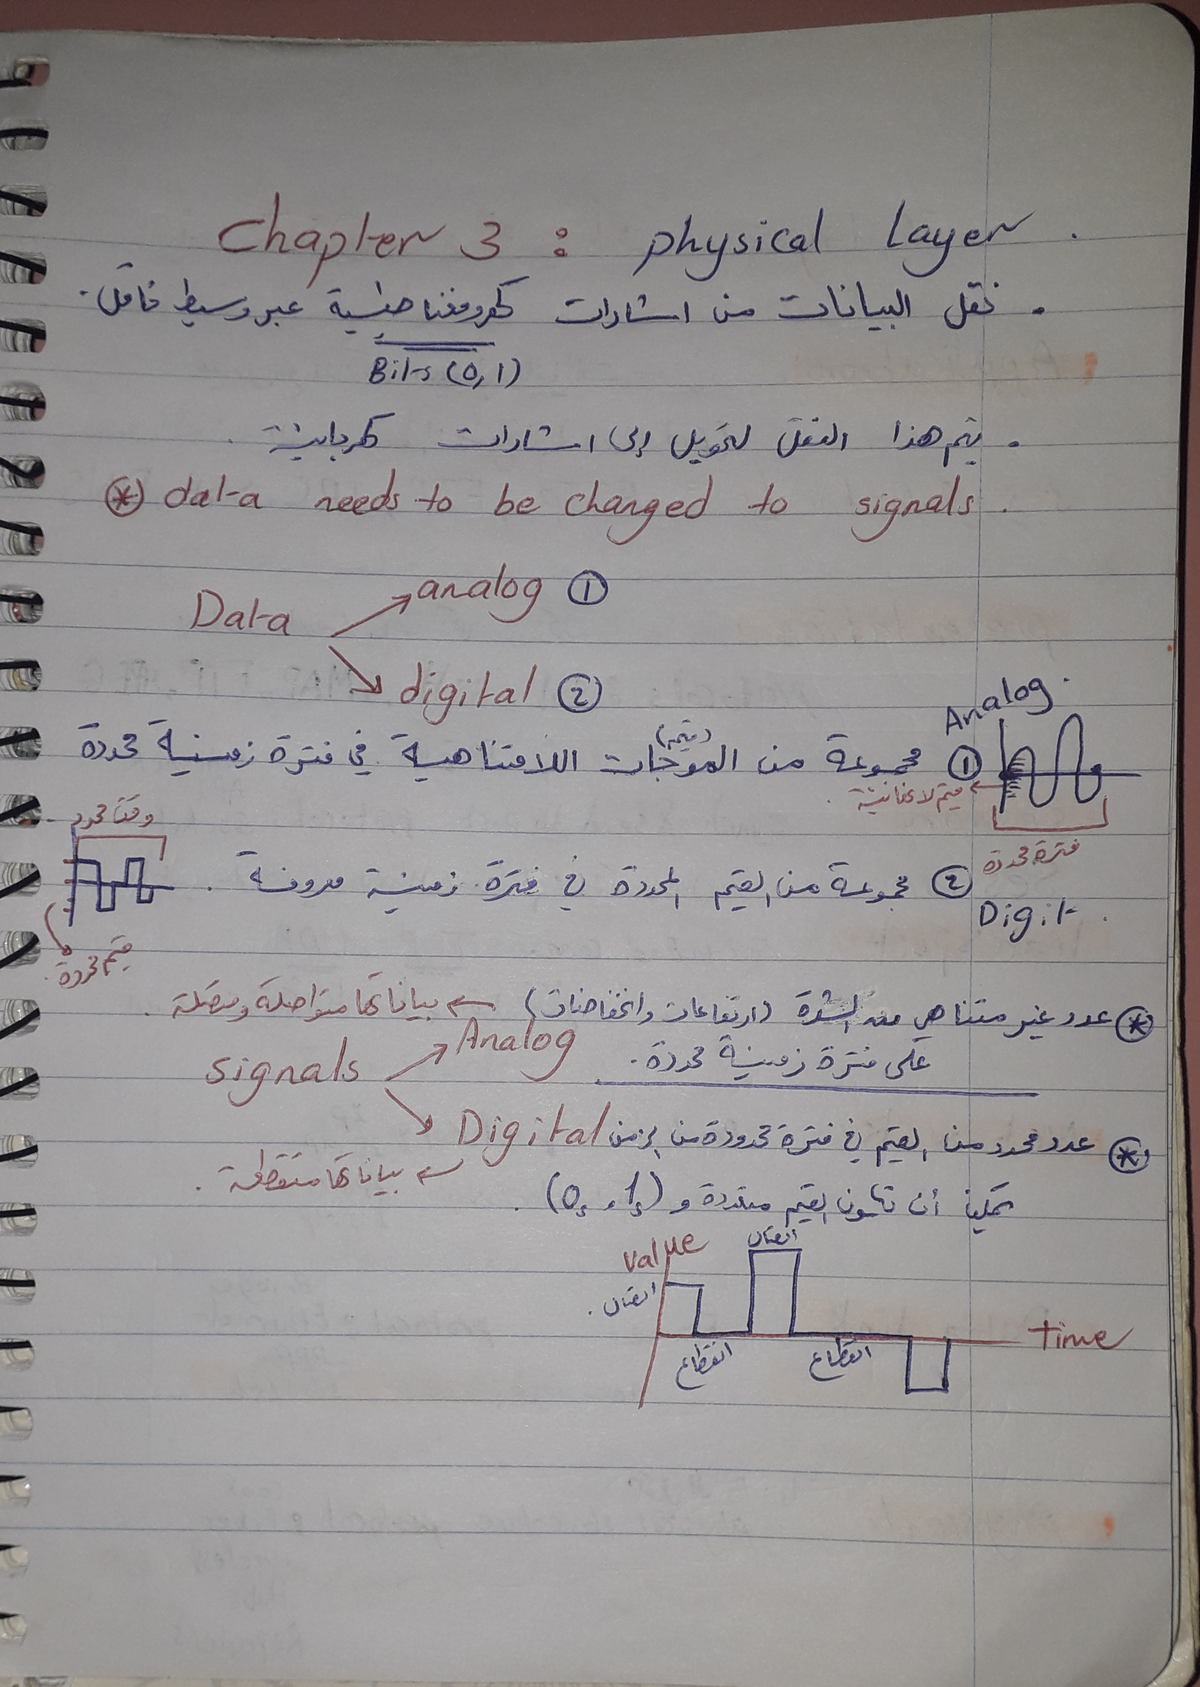 Chapter 3 : physical Layer .
. نقل البيانات من اشارات كهرومغناطيسية عبر وسيط ناقل .
Bits (0,1)
. يتم هذا النقل لتحويل إلى اشارات كهربائية .
* data needs to be changed to signals .
Data
analog ①
digital ②
Analog .
(قيم)
① مجموعة من الموجات اللامتناهية في فترة زمنية محددة
قيم لا نهائية .
فترة محددة
وقت محدد
② مجموعة من القيم المحددة في فترة زمنية معروفة .
Digit .
قيم محددة .
* عدد غير متناهي من الشدة (ارتفاعات وانخفاضات) ← بياناتها متواصلة ومتصلة .
على فترة زمنية محددة .
signals
Analog
Digital
* عدد محدد من القيم في فترة محدودة من الزمن
← بياناتها متقطعة .
يمكن أن تكون القيم متعددة و (0s , 1s) .
value
اتصال
اتصال .
انقطاع
انقطاع
time